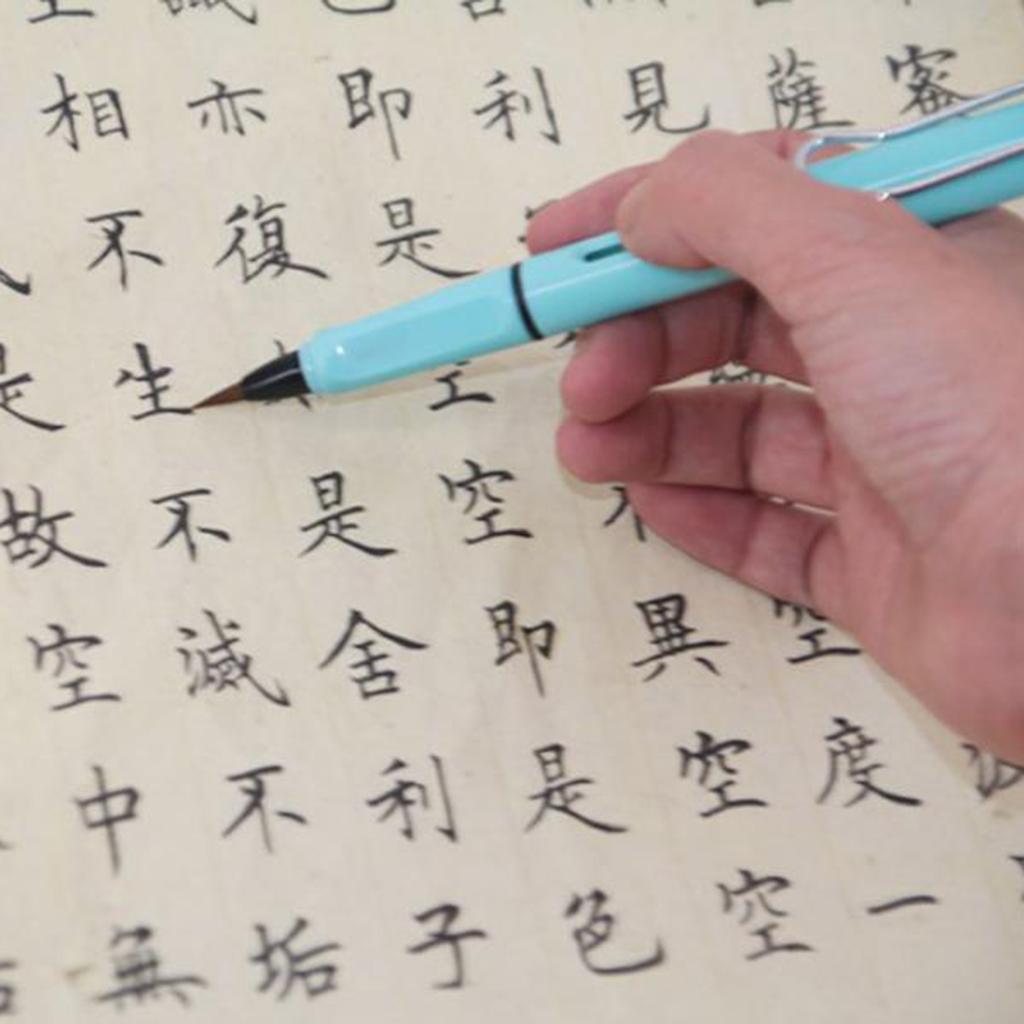 密
薩
見空度一
利不異空空
即是空空即是色
亦復是舍利子
相不生不滅不垢
是故空中無